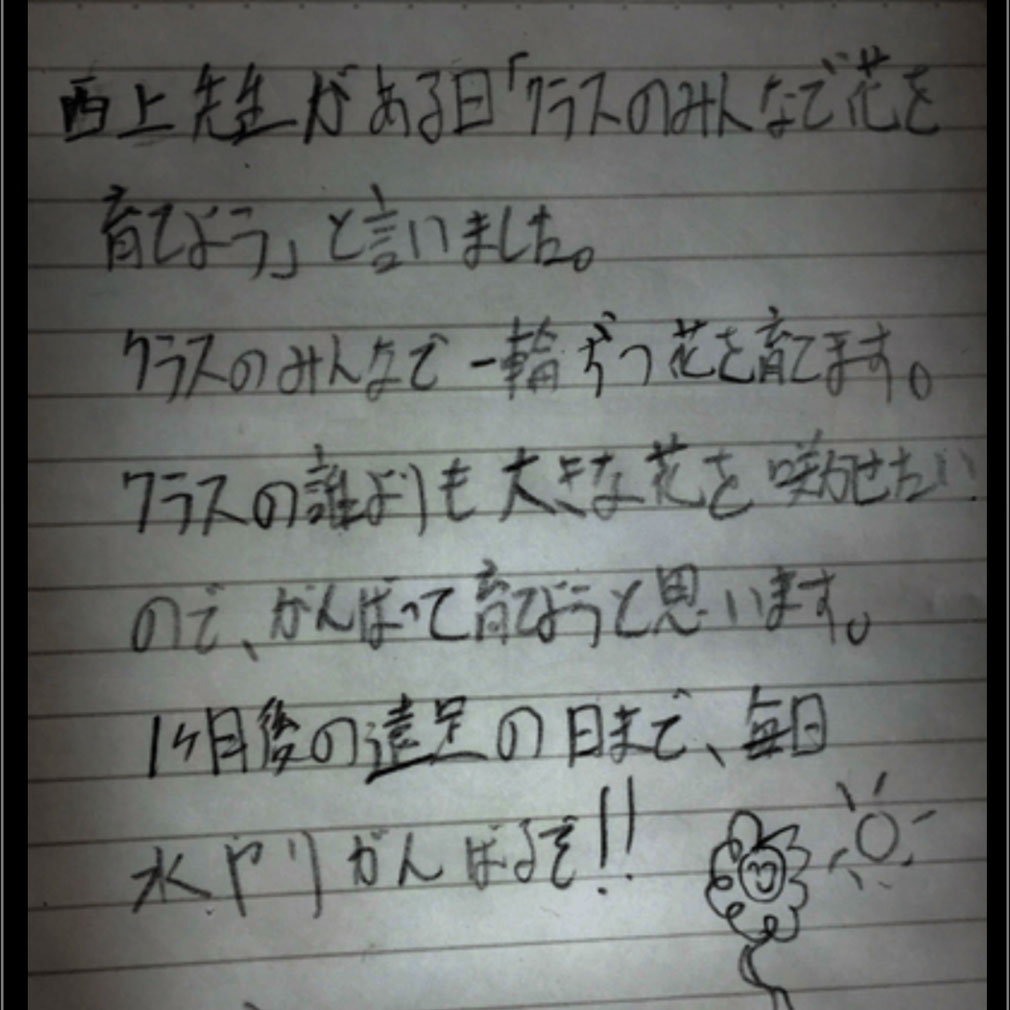 西上先生がある日「クラスのみんなで花を
育てよう」と言いました。
クラスのみんなで一輪ずつ花を育てます。
クラスの誰よりも大きな花を咲かせたい
ので、がんばって育てようと思います。
1ヶ月後の遠足の日まで、毎日
水やりがんばるぞ!!